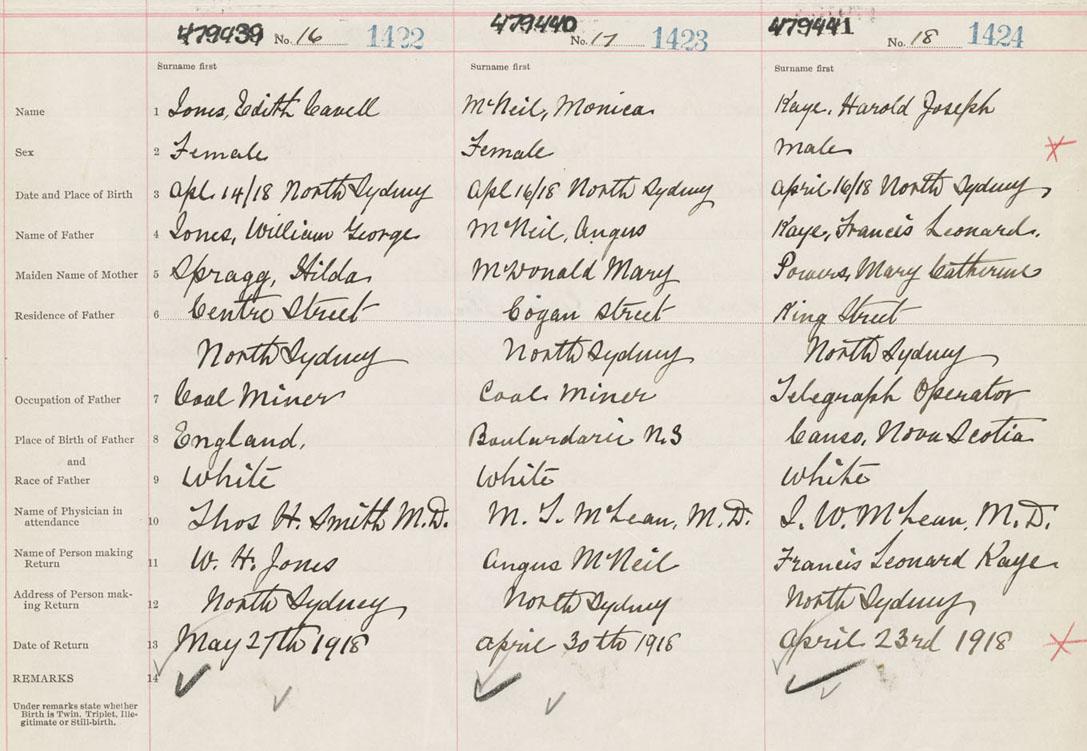 479439 No. 16 1422 479440 No. 17 1423 479441 No. 18 1424
Surname first Surname first Surname first
Name 1 Jones, Edith Cavell McNeil, Monica Kaye, Harold Joseph
Sex 2 Female Female male
Date and Place of Birth 3 Apl. 14/18 North Sydney Apl 16/18 North Sydney April 16/18 North Sydney
Name of Father 4 Jones, William George McNeil, Angus Kaye, Francis Leonard.
Maiden Name of Mother 5 Spragg, Hilda McDonald Mary Powers, Mary Catherine
Residence of Father 6 Centre Street Cogan Street King Street
North Sydney North Sydney North Sydney
Occupation of Father 7 Coal Miner Coal Miner Telegraph Operator
Place of Birth of Father 8 England, Boulardarie N.S Canso, Nova Scotia
and
Race of Father 9 White White White
Name of Physician in
attendance 10 Thos H. Smith M.D. M. T. McLean, M.D. J. W. McLean, M.D.
Name of Person making
Return 11 W. H. Jones Angus McNeil Francis Leonard Kaye
Address of Person mak-
ing Return 12 North Sydney North Sydney North Sydney
Date of Return 13 May 27th 1918 April 30th 1918 April 23rd 1918
REMARKS 14
Under remarks state whether
Birth is Twin, Triplet, Ille-
gitimate or Still-birth.